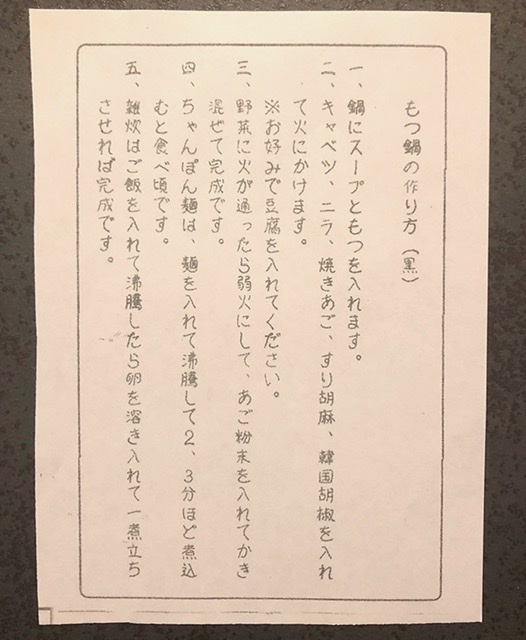 もつ鍋の作り方（黒）
一、鍋にスープともつを入れます。
二、キャベツ、ニラ、焼きあご、すり胡麻、韓国胡椒を入れ
て火にかけます。
※お好みで豆腐を入れてください。
三、野菜に火が通ったら弱火にして、あご粉末を入れてかき
混ぜて完成です。
四、ちゃんぽん麺は、麺を入れて沸騰して２、３分ほど煮込
むと食べ頃です。
五、雑炊はご飯を入れて沸騰したら卵を溶き入れて一煮立ち
させれば完成です。